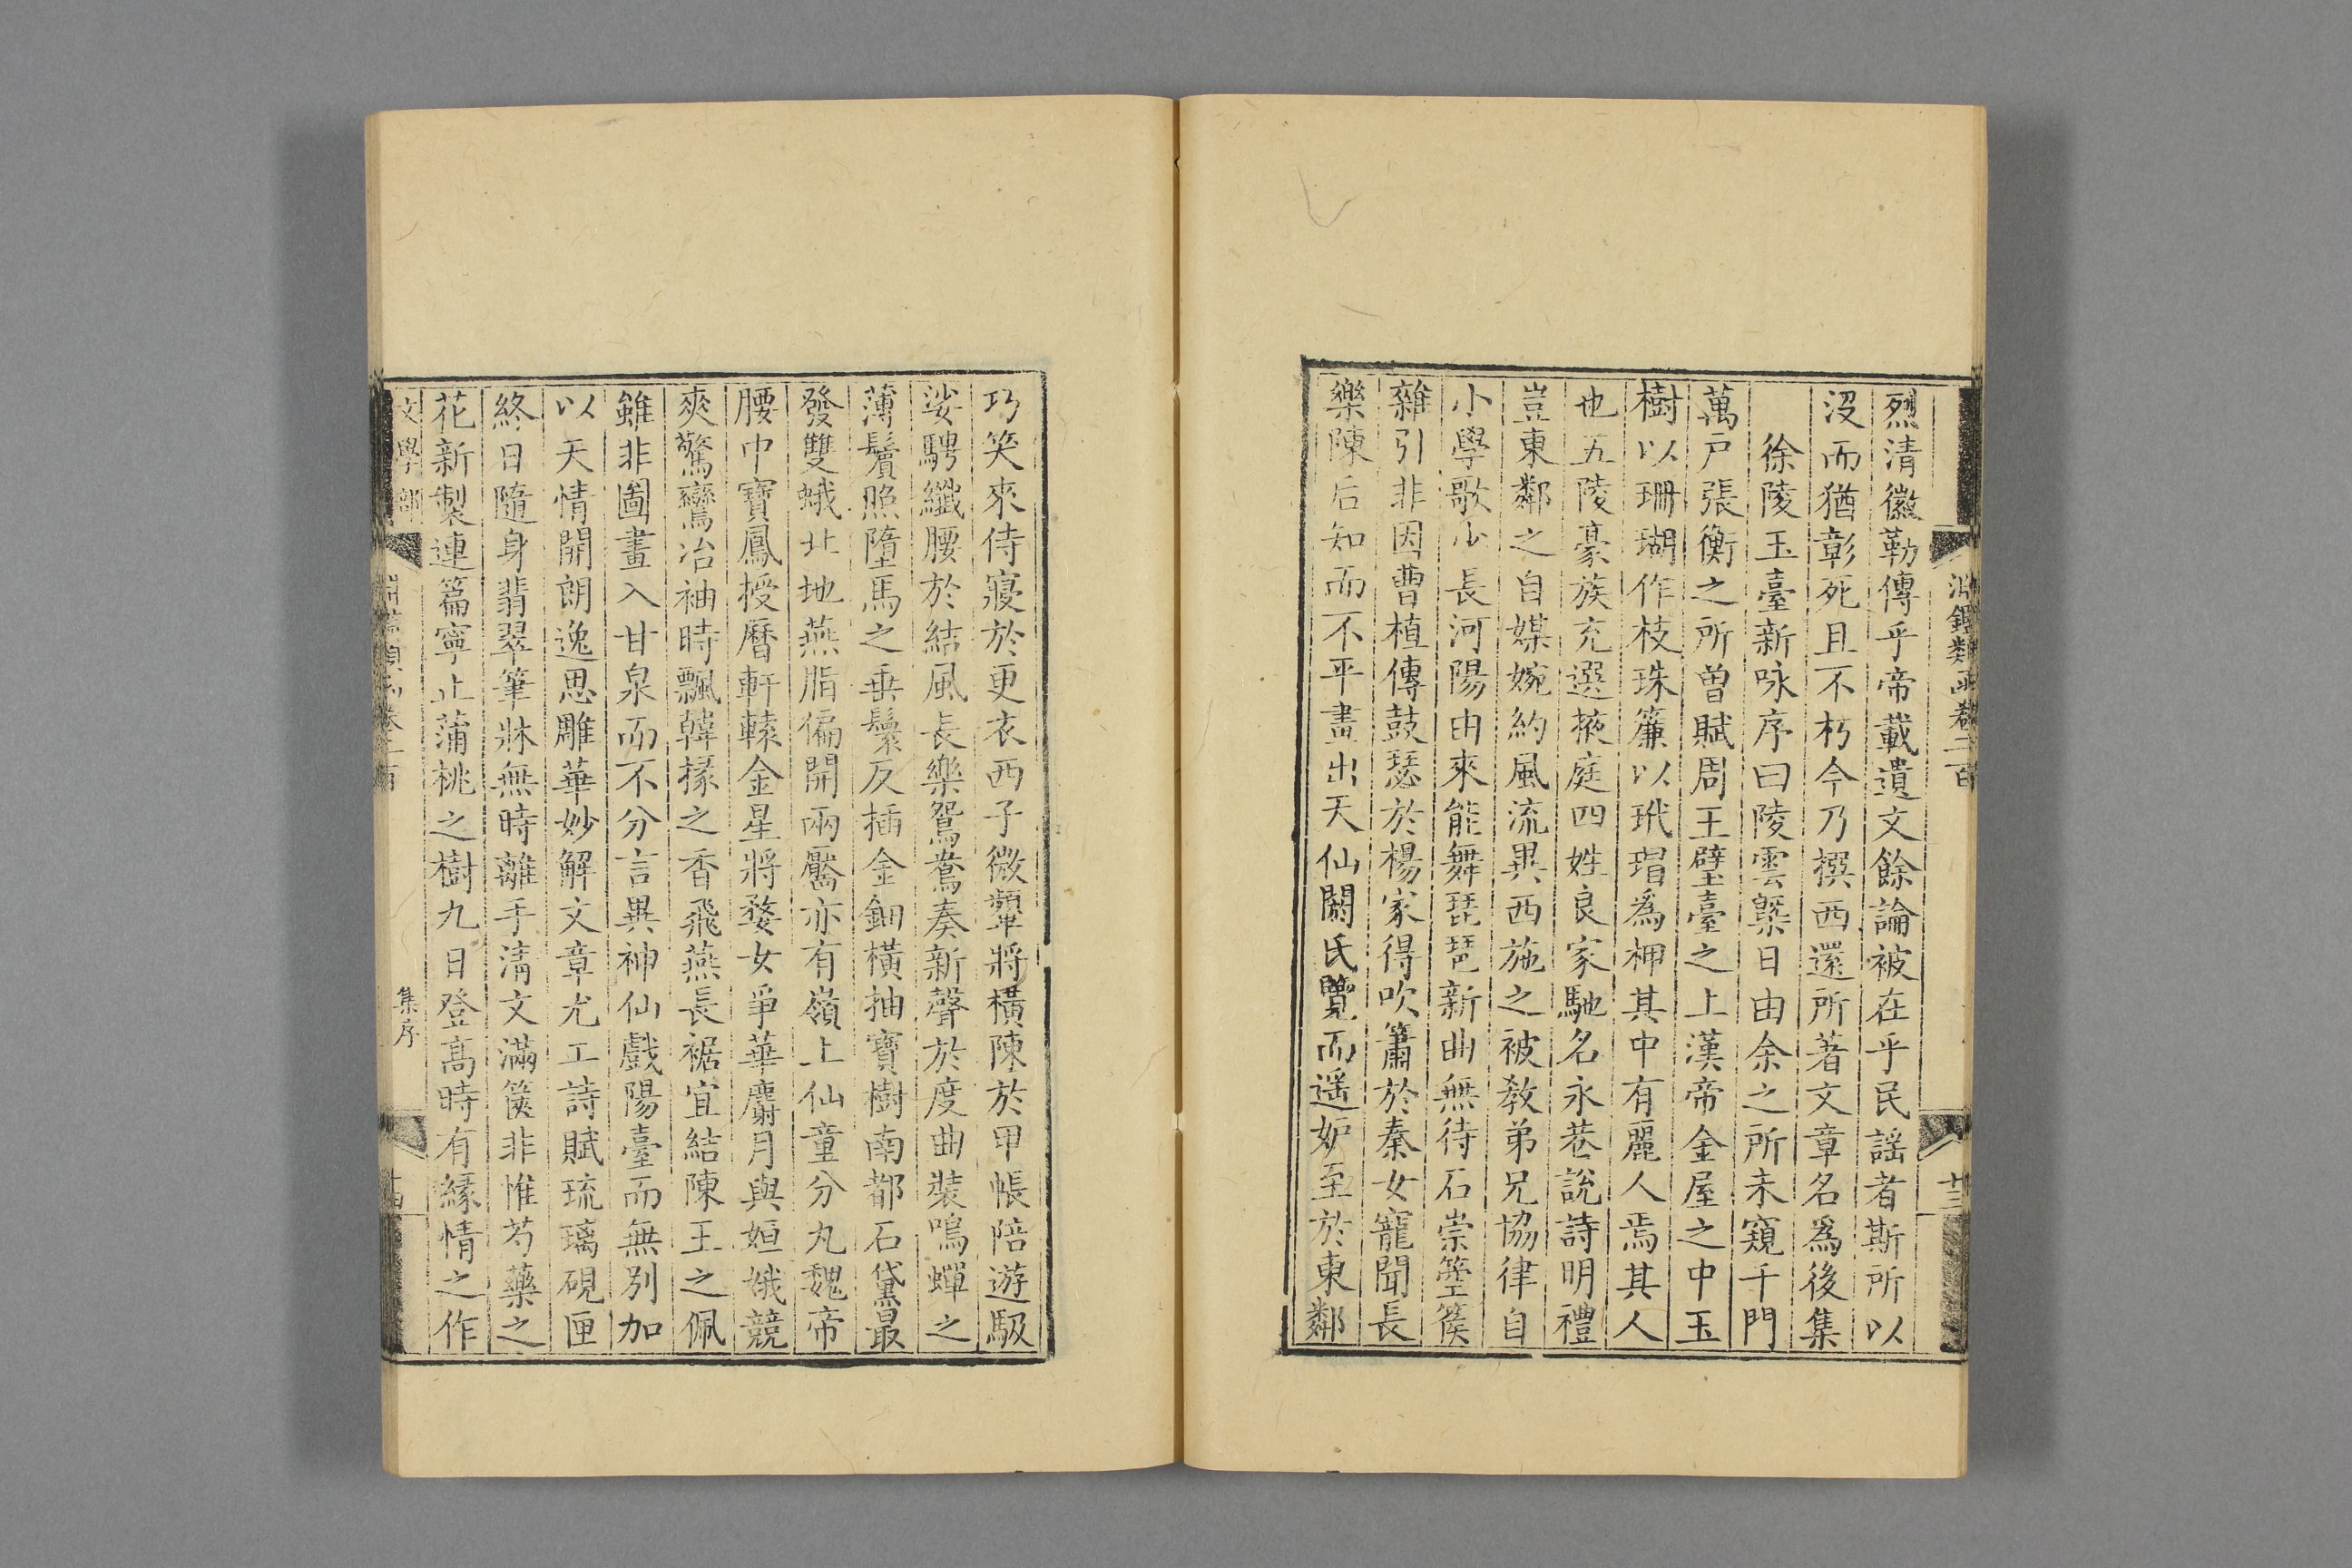 淵鑑類函卷二百
廿三
烈清徽勒傳乎帝載遺文餘論被在乎民謡者斯所以
沒而猶彰死且不朽今乃撰西還所著文章名爲後集
徐陵玉臺新咏序曰陵雲槩日由余之所未窺千門
萬戸張衡之所曾賦周王璧臺之上漢帝金屋之中玉
樹以珊瑚作枝珠簾以玳瑁爲柙其中有麗人焉其人
也五陵豪族充選掖庭四姓良家馳名永巷說詩明禮
豈東鄰之自媒婉約風流異西施之被教弟兄協律自
小學歌少長河陽由來能舞琵琶新曲無待石崇箜篌
雜引非因曹植傳鼓瑟於楊家得吹簫於秦女寵聞長
樂陳后知而不平畫出天仙閼氏覽而遥妒至於東鄰
巧笑來侍寢於更衣西子微顰將橫陳於甲帳陪遊馺
娑騁纖腰於結風長樂鴛鴦奏新聲於度曲裝鳴蟬之
薄鬢照墮馬之垂鬟反插金鈿橫抽寶樹南都石黛最
發雙蛾北地燕脂偏開兩靨亦有嶺上仙童分丸魏帝
腰中寶鳳授曆軒轅金星將婺女爭華麝月與姮娥競
爽驚鸞冶袖時飄韓掾之香飛燕長裾宜結陳王之佩
雖非圖畫入甘泉而不分言異神仙戲陽臺而無別加
以天情開朗逸思雕華妙解文章尤工詩賦琉璃硯匣
終日隨身翡翠筆牀無時離手清文滿篋非惟芍藥之
花新製連篇寧止蒲桃之樹九日登高時有緣情之作
文學部
集序